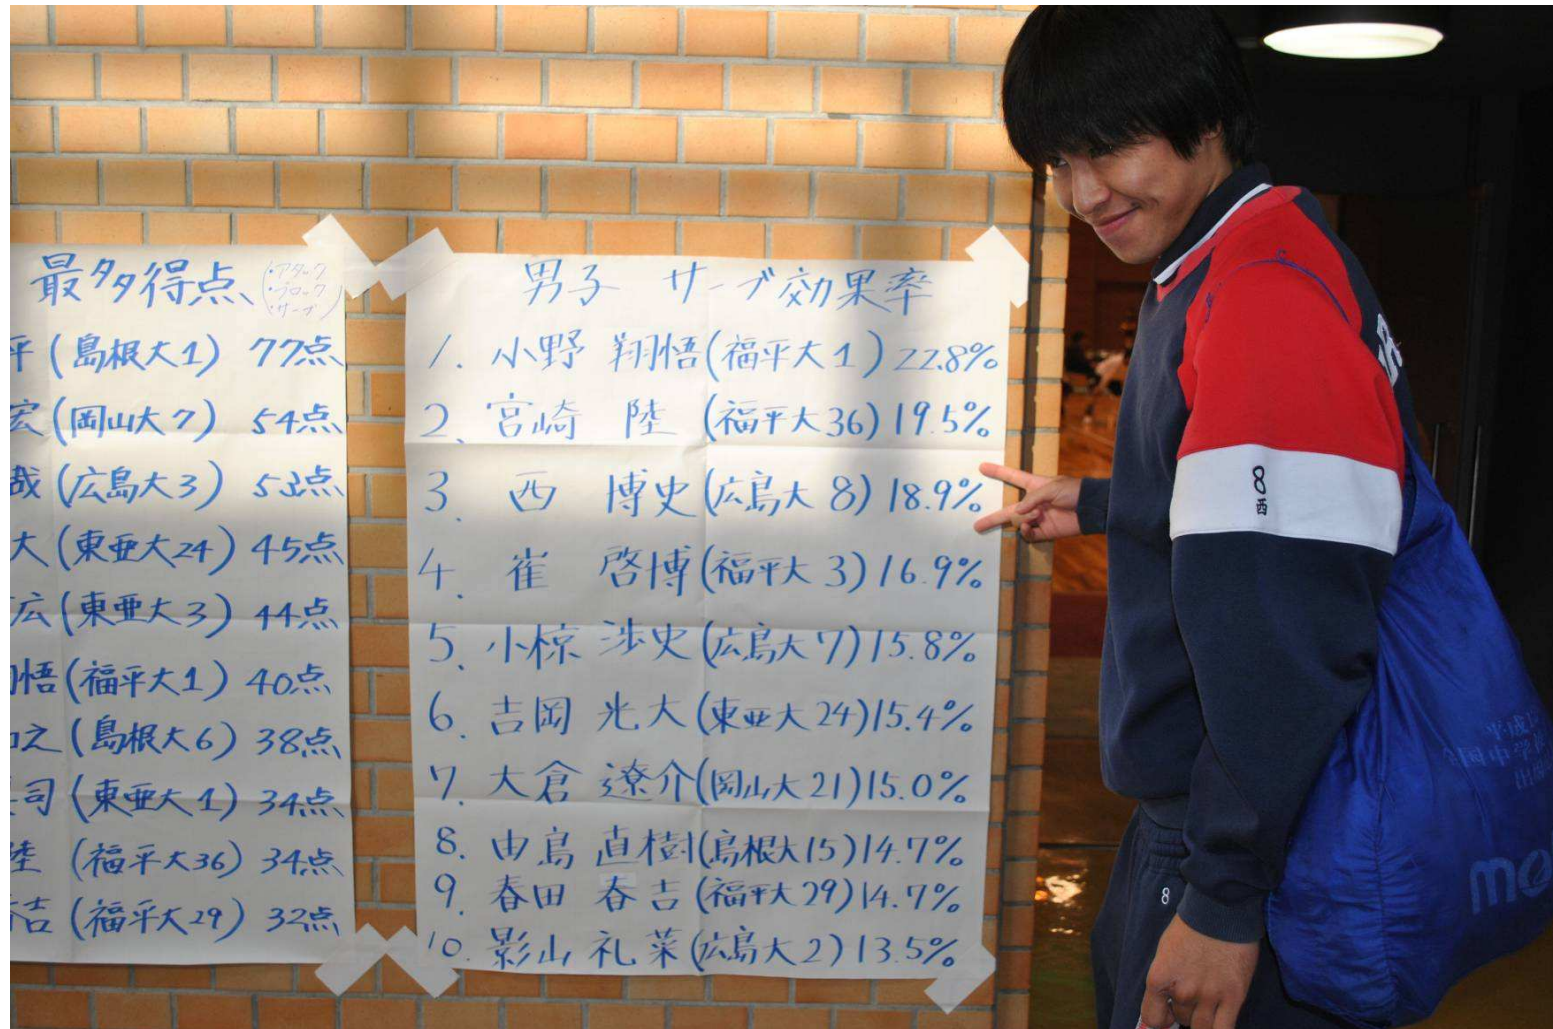 最多得点
・アタック
・ブロック
・サーブ
平(島根大1) 77点
宏(岡山大7) 54点
哉(広島大3) 53点
大(東亜大24) 45点
広(東亜大3) 44点
悟(福平大1) 40点
之(島根大6) 38点
司(東亜大1) 34点
陸 (福平大36) 34点
吉(福平大29) 32点
男子 サーブ効果率
1. 小野 翔悟(福平大1) 22.8%
2. 宮崎 陸 (福平大36) 19.5%
3. 西 博史(広島大8) 18.9%
4. 崔 啓博(福平大3) 16.9%
5. 小椋 渉史(広島大7) 15.8%
6. 吉岡 光大(東亜大24) 15.4%
7. 大倉 遼介(岡山大21) 15.0%
8. 由島 直樹(島根大15) 14.7%
9. 春田 春吉(福平大29) 14.7%
10. 影山 礼菜(広島大2) 13.5%
8
西
8
平成
国中学
mo